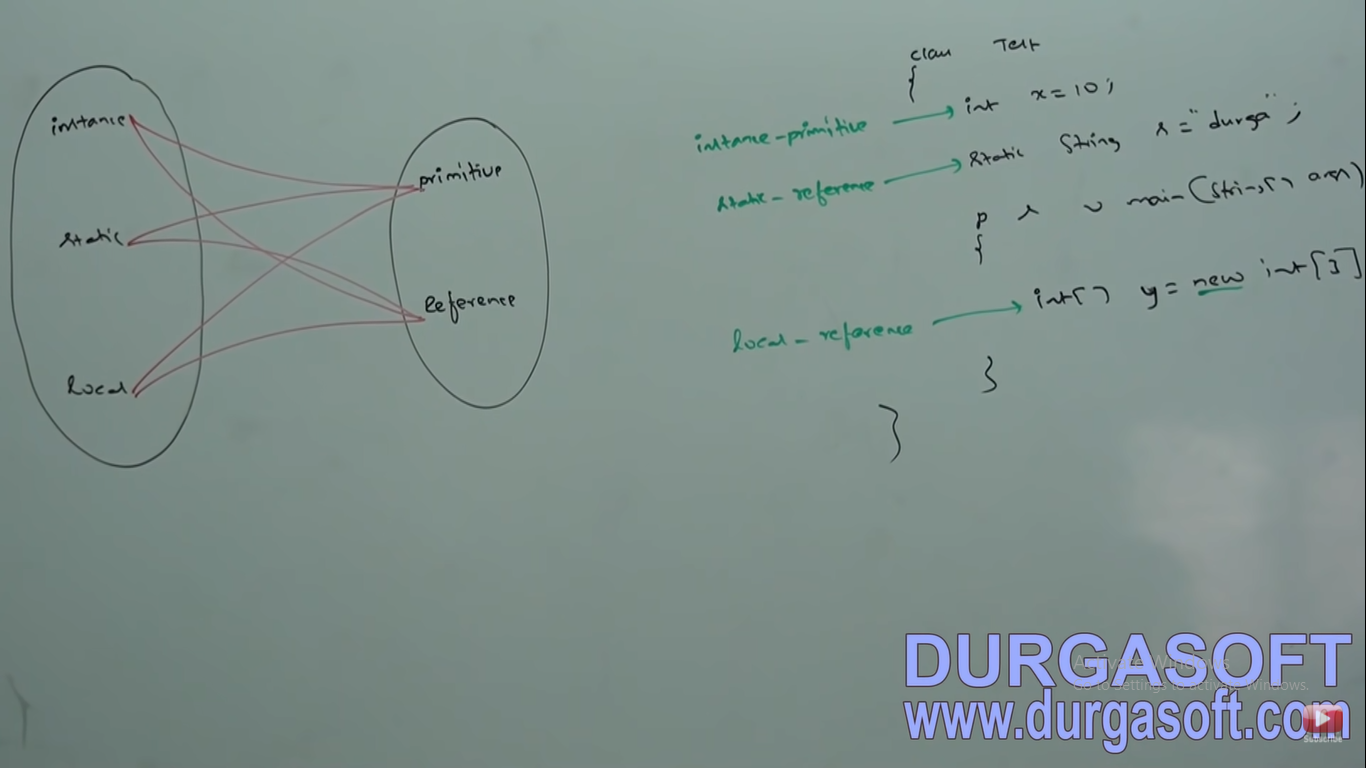 instance
static
local
primitive
Reference
class Test
{
instance-primitive → int x=10;
static-reference → static String s="durga";
p s v main(String[] args)
{
local-reference → int[] y = new int[3]
}
}
DURGASOFT
Activate Windows
Go to Settings to activate Windows.
www.durgasoft.com
Subscribe